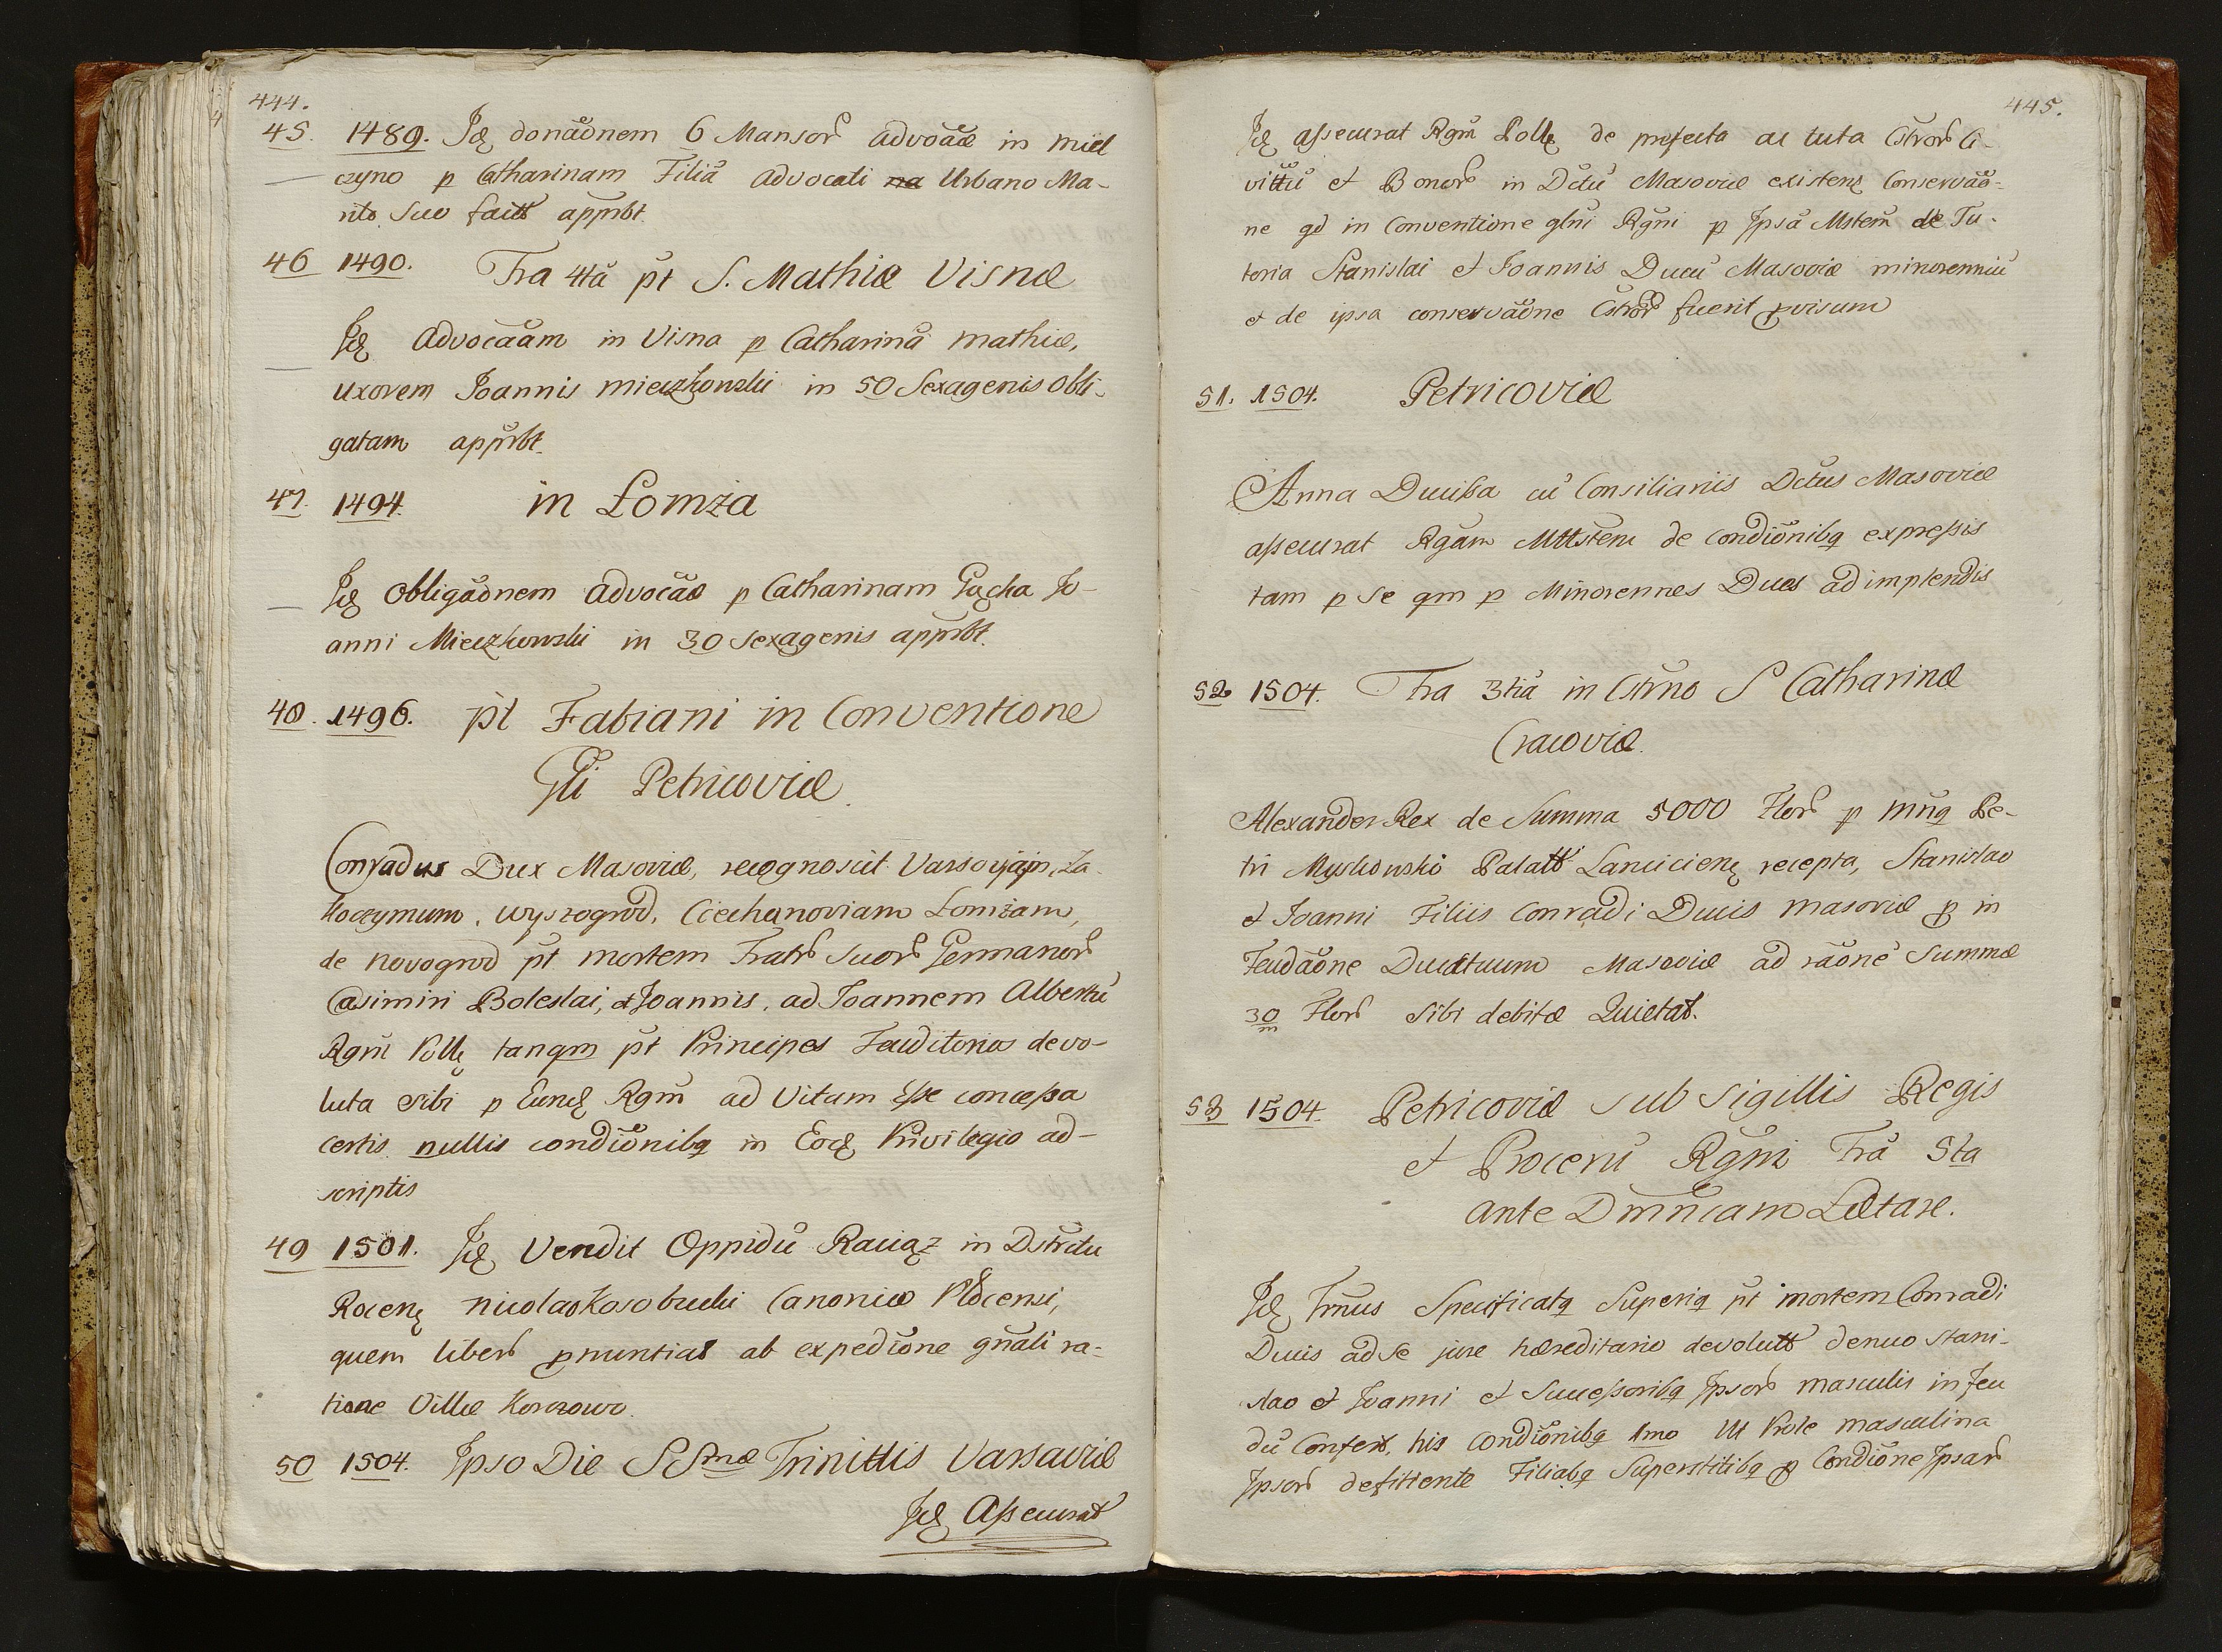 444.
45. 1489. Jdę donãdnem 6 Mansor Advocãæ in miel
czyno p Catharinam Filiã Advocati na Urbano Ma-
rito Suo factt apprbt
46 1490. Fra 4tã pt S. Mathiæ Visnæ
Jdę Advocãam in Visna p Catharinã Mathiæ,
uxorem Joannis Mieczkowski in 50 Sexagenis obli-
gatam apprbt.
47. 1494. in Łomża
Jdę Obligãdnem Advocãæ p Catharinam Jo-
anni Mieczkowski in 30 sexagenis apprbt.
48. 1496. pt Fabiani in Conventione
Gli Petricoviæ.
Conradus Dux Masoviæ, recognoscit Varsoviam, Za-
kroczymum, Wyszogrod, Ciechanoviam Łomżam,
de Novogrod pt mortem Fratr Suor Germanor
Casimiri Boleslai, & Joannis, ad Joannem Albertũ
Rgm Pollę tanqm pt Principes Feuditorios devo-
luta sibi p Eundę Rgm ad Vitam Esse concessa
certis nullis condiõnibq in Eodę Privilegio ad-
scriptis
49 1501. Jdę Vendit Oppidũ Raciąż in Dstrctu
Rocenę Nicolao Kosobucki Canonico Plocensi,
quem liber pnuntiat ab expediõne gnãli ra-
tione Villæ Korzowo.
50 1504. Ipso Die SSmæ Trinittis Varsaviæ
Jdę Assecurat
445.
Jdę assecurat Rgm Pollę de profecta ac tuta Cstror Ci-
vittũ et Bonor in Dctũ Masoviæ existenę Conservãõ-
ne qd in Conventione glni Rgni p Ipsã Mstem de Tu-
toria Stanislai et Joannis Ducũ Masoviæ minorenniũ
et de ipsa conservãdne Cstror fuerit pvisum
51. 1504. Petricoviæ
Anna Ducissa cũ Consiliariis Dctus Masoviæ
assecurat Rgãm Mttstem de Condiõnibq expressis
tam p se qm p Minorennes Duces adimplendis
52 1504. Fra 3tiã in Cstrno S Catharinæ
Cracoviæ.
Alexander Rex de Summa 5000 Flor p mnq Pe-
tri Myszkowski Palatt Lancicienę recepta, Stanislao
et Joanni Filiis Conradi Ducis Masoviæ p in
Feudãõne Ducatuum Masoviæ ad rãõnẽ Summæ
30 m Flor sibi debitæ Quietat.
53 1504. Petricoviæ sub Sigillis Regis
et Procerũ Rgni Frã 5ta
ante Dmñcam Lætare.
Jdę Trnus Specificatq Superiq pt mortem Conradi
Ducis ad se jure hæreditario devolutt denuo Stani-
slao et Joanni et Successoribq Ipsor masculis in feu
dũ Confert, his condiõnibq 1mo Ut Prole masculina
Ipsor defitiente Filiabq Superstitibq p Condiõne Ipsar